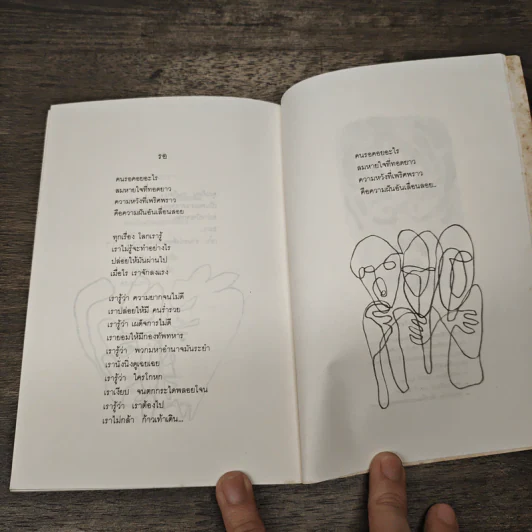 รอ
คนรอคอยอะไร
ลมหายใจที่ทอดยาว
ความหวังที่เพริศพราว
คือความฝันอันเลือนลอย
ทุกเรื่อง โลกเรารู้
เราไม่รู้จะทำอย่างไร
ปล่อยให้มันผ่านไป
เมื่อไร เราจักลงแรง
เรารู้ว่า ความยากจนไม่ดี
เราปล่อยให้มี คนร่ำรวย
เรารู้ว่า เผด็จการไม่ดี
เรายอมให้มีกองทัพทหาร
เรารู้ว่า พวกมหาอำนาจมันระยำ
เรานั่งนิ่งดูเฉยเฉย
เรารู้ว่า ใครโกหก
เราเงียบ จนตกกระไดพลอยโจน
เรารู้ว่า เราต้องไป
เราไม่กล้า ก้าวเท้าเดิน...
คนรอคอยอะไร
ลมหายใจที่ทอดยาว
ความหวังที่เพริศพราว
คือความฝันอันเลือนลอย..